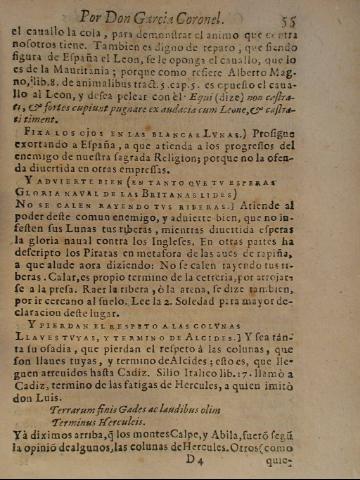 Por Don Garcia Coronel. 55
el cauallo la cola, para demonstrar el animo que contra
nosotros tiene. Tambien es digno de reparo, que siendo
figura de España el Leon, se le oponga el cauallo, que lo
es de la Mauritania; porque como refiere Alberto Mag-
no, lib. 8. de animalibus tract. 5. cap. 5. es opuesto el caua-
llo al Leon, y desea pelear con èl. Equi (dize) non castra-
ti, & fortes cupiunt pugnare ex audacia cum Leone, & castra-
ti timent.
FIXA LOS OJOS EN LAS BLANCAS LVNAS.) Prosigue
exortando a España, a que atienda a los progressos del
enemigo de nuestra sagrada Religion; porque no la ofen-
da diuertida en otras empressas.
Y ADVIERTE BIEN (EN TANTO QVE TV ESPERAS
GLORIA NAVAL DE LAS BRITANAS LIDES)
NO SE CALEN RAYENDO TVS RIBERAS.) Atiende al
poder deste comun enemigo, y aduierte bien, que no in-
festen sus Lunas tus riberas, mientras diuertida esperas
la gloria naual contra los Ingleses. En otras partes ha
descripto los Piratas en metafora de las aues de rapiña,
a que alude aora diziendo: No se calen rayendo tus ri-
beras. Calar, es propio termino de la cetreria, por arrojar-
se a la presa. Raer la ribera, ò la arena, se dize tambien,
por ir cercano al suelo. Lee la 2. Soledad para mayor de-
claracion deste lugar.
Y PIERDAN EL RESPETO A LAS COLVNAS
LLAVES TVYAS, Y TERMINO DE ALCIDES.] Y sea tan-
ta su osadia, que pierdan el respeto à las colunas, que
son llaues tuyas, y termino de Alcides; esto es, que lle-
guen arreuidos hasta Cadiz. Silio Italico lib. 17. llamò a
Cadiz, termino de las fatigas de Hercules, a quien imitò
don Luis.
Terrarum finis Gades ac laudibus olim
Terminus Herculeis.
Yà diximos arriba, q̃ los montes Calpe, y Abila, fuerõ segũ
la opiniõ de algunos, las colunas de Hercules. Otros (como
D 4 quie-